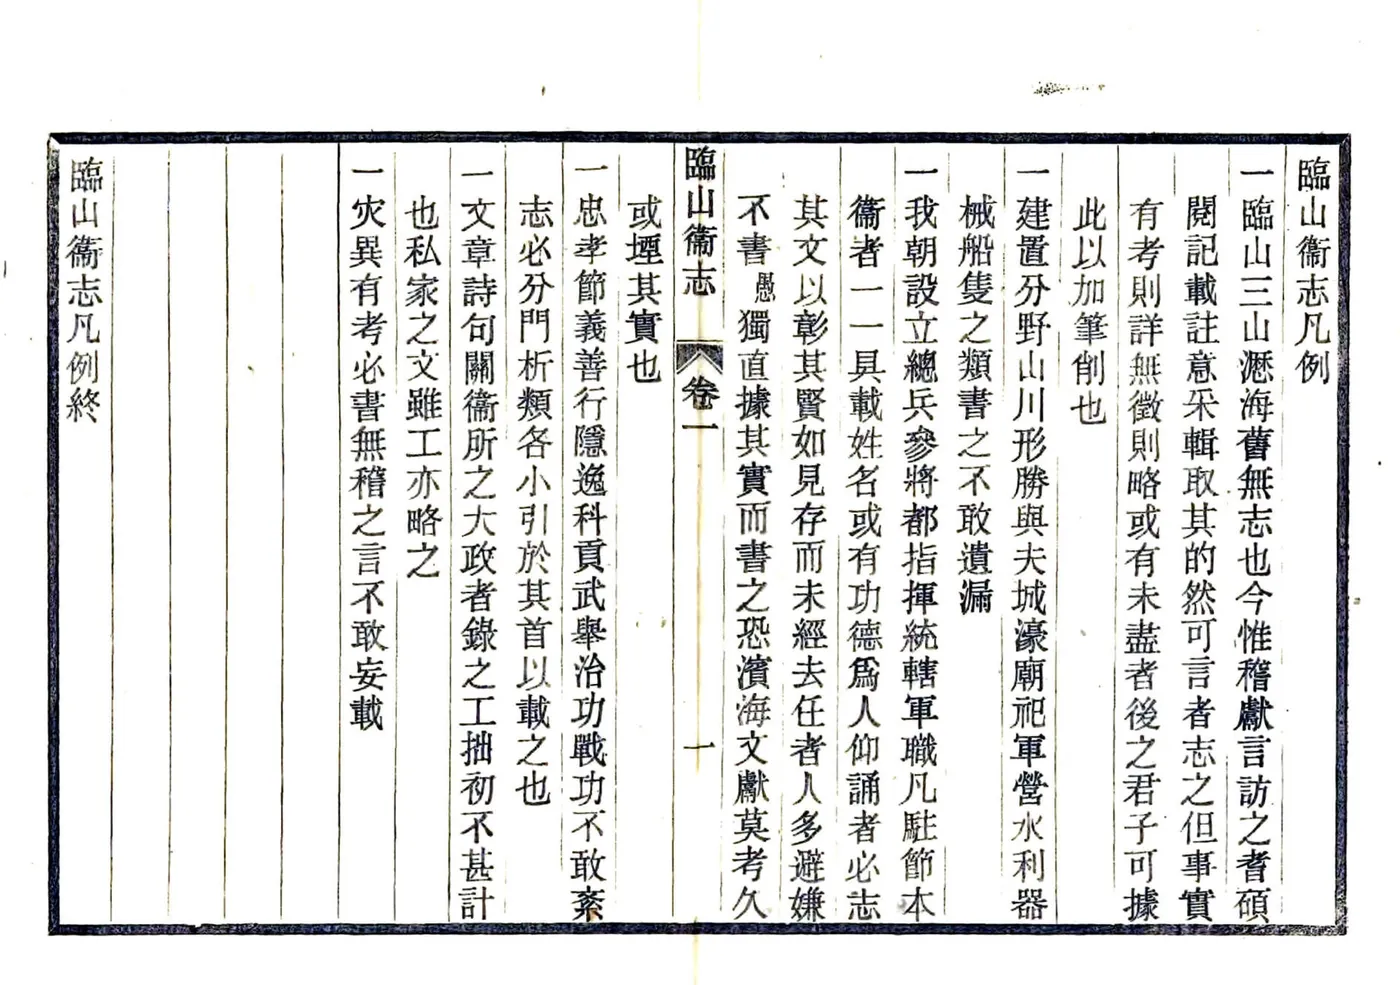 臨山衞志凡例
一臨山三山瀝海舊無志也今惟稽獻言訪之耆碩
閱記載註意采輯取其的然可言者志之但事實
有考則詳無徵則略或有未盡者後之君子可據
此以加筆削也
一建置分野山川形勝與夫城濠廟祀軍營水利器
械船隻之類書之不敢遺漏
一我朝設立總兵參將都指揮統轄軍職凡駐節本
衞者一一具載姓名或有功德爲人仰誦者必志
其文以彰其賢如見存而未經去任者人多避嫌
不書愚獨直據其實而書之恐濱海文獻莫考久
臨山衞志
卷一
一
或堙其實也
一忠孝節義善行隱逸科貢武舉治功戰功不敢紊
志必分門析類各小引於其首以載之也
一文章詩句關衞所之大政者錄之工拙初不甚計
也私家之文雖工亦略之
一灾異有考必書無稽之言不敢妄載
臨山衞志凡例終